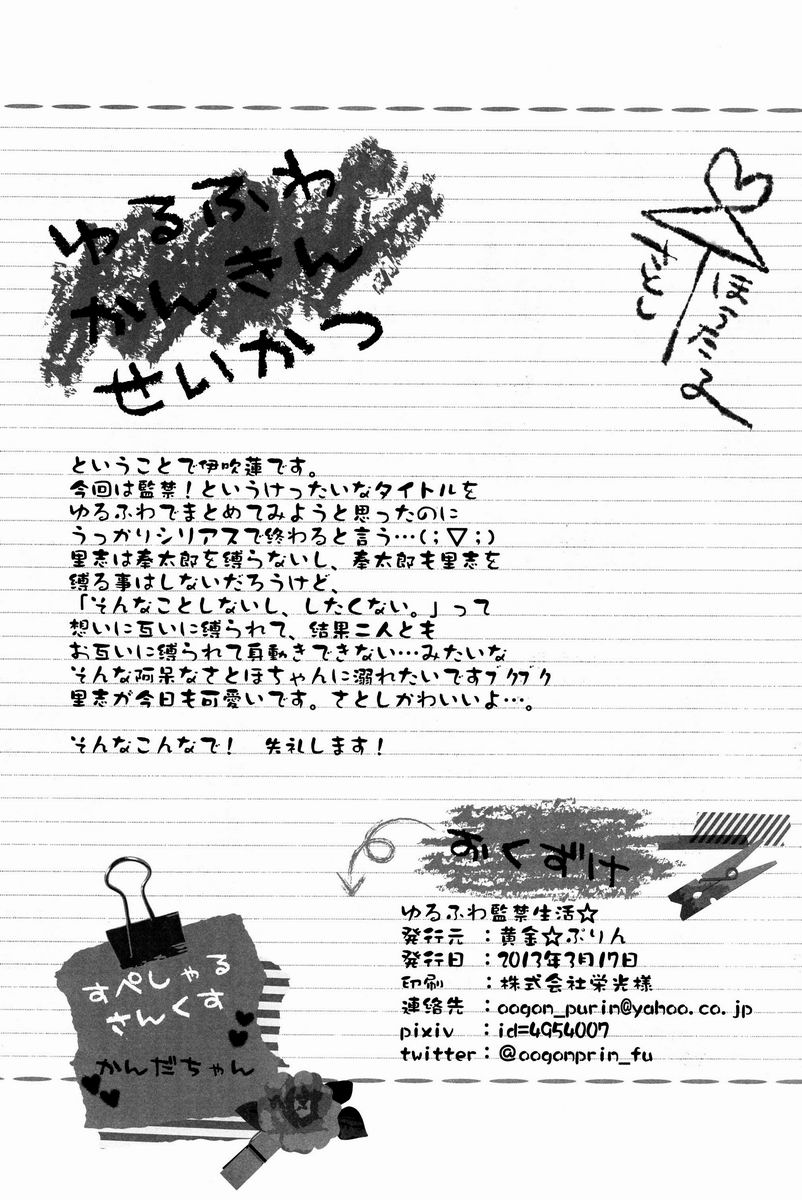 ゆるふわ
かんきん
せいかつ
さとし
ほうたる
ということで伊吹蓮です。
今回は監禁！というけったいなタイトルを
ゆるふわでまとめてみようと思ったのに
うっかりシリアスで終わると言う…(；▽；)
里志は奉太郎を縛らないし、奉太郎も里志を
縛る事はしないだろうけど、
「そんなことしないし、したくない。」って
想いに互いに縛られて、結果二人とも
お互いに縛られて身動きできない…みたいな
そんな阿呆なさとほちゃんに溺れたいですﾌﾞｸﾌﾞｸ
里志が今日も可愛いです。さとしかわいいよ…。
そんなこんなで！　失礼します！
おくずけ
ゆるふわ監禁生活☆
発行元　：黄金☆ぷりん
発行日　：2013年3月17日
印刷　　：株式会社栄光様
連絡先　：oogon_purin@yahoo.co.jp
pixiv　：id=4954007
twitter：@oogonprin_fu
すぺしゃる
さんくす
かんだちゃん